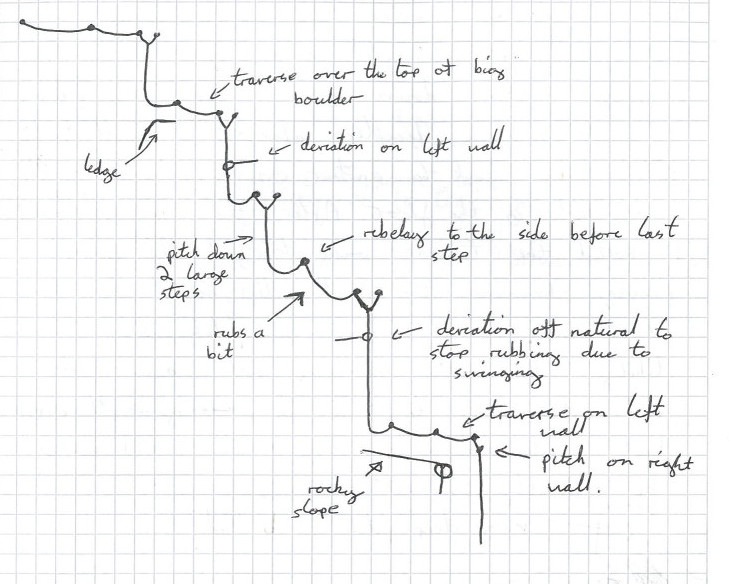 traverse over the top of big
boulder
ledge
deviation on left wall
rebelay to the side before last
step
pitch down
2 large
steps
rubs a
bit
deviation off natural to
stop rubbing due to
swinging
traverse on left
wall
pitch on right
wall.
rocky
slope